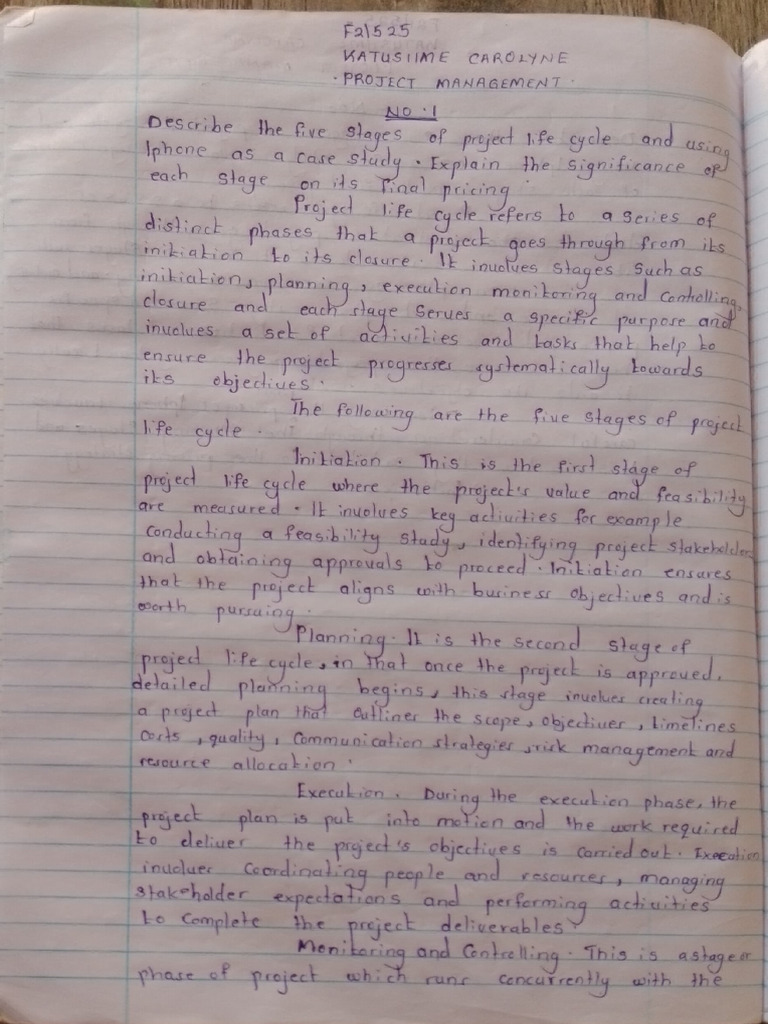 F21525
KATUSIIME CAROLYNE
· PROJECT MANAGEMENT ·
NO · 1
Describe the five stages of project life cycle and using
Iphone as a case study · Explain the significance of
each stage on its final pricing
Project life cycle refers to a series of
distinct phases that a project goes through from its
initiation to its closure · It involves stages such as
initiation, planning, execution monitoring and controlling,
closure and each stage serves a specific purpose and
involves a set of activities and tasks that help to
ensure the project progresses systematically towards
its objectives ·
The following are the five stages of project
life cycle ·
Initiation · This is the first stage of
project life cycle where the project's value and feasibility
are measured · It involves key activities for example
conducting a feasibility study, identifying project stakeholders
and obtaining approvals to proceed · Initiation ensures
that the project aligns with business objectives and is
worth pursuing ·
Planning · It is the second stage of
project life cycle, in that once the project is approved,
detailed planning begins, this stage involves creating
a project plan that outlines the scope, objectives, timelines
costs, quality, communication strategies, risk management and
resource allocation ·
Execution · During the execution phase, the
project plan is put into motion and the work required
to deliver the project's objectives is carried out · Execution
involves coordinating people and resources, managing
stakeholder expectations and performing activities
to complete the project deliverables ·
Monitoring and Controlling · This is a stage or
phase of project which runs concurrently with the